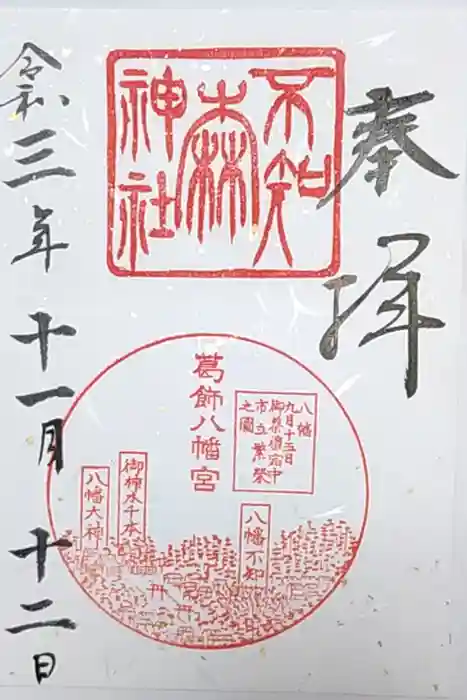 奉拝
不知
森
神社
葛飾八幡宮
八幡
九月十五日
御祭禮宿中
市立繁榮
之圖
八幡不知
御神木千本
八幡大神
令和三年十一月十二日